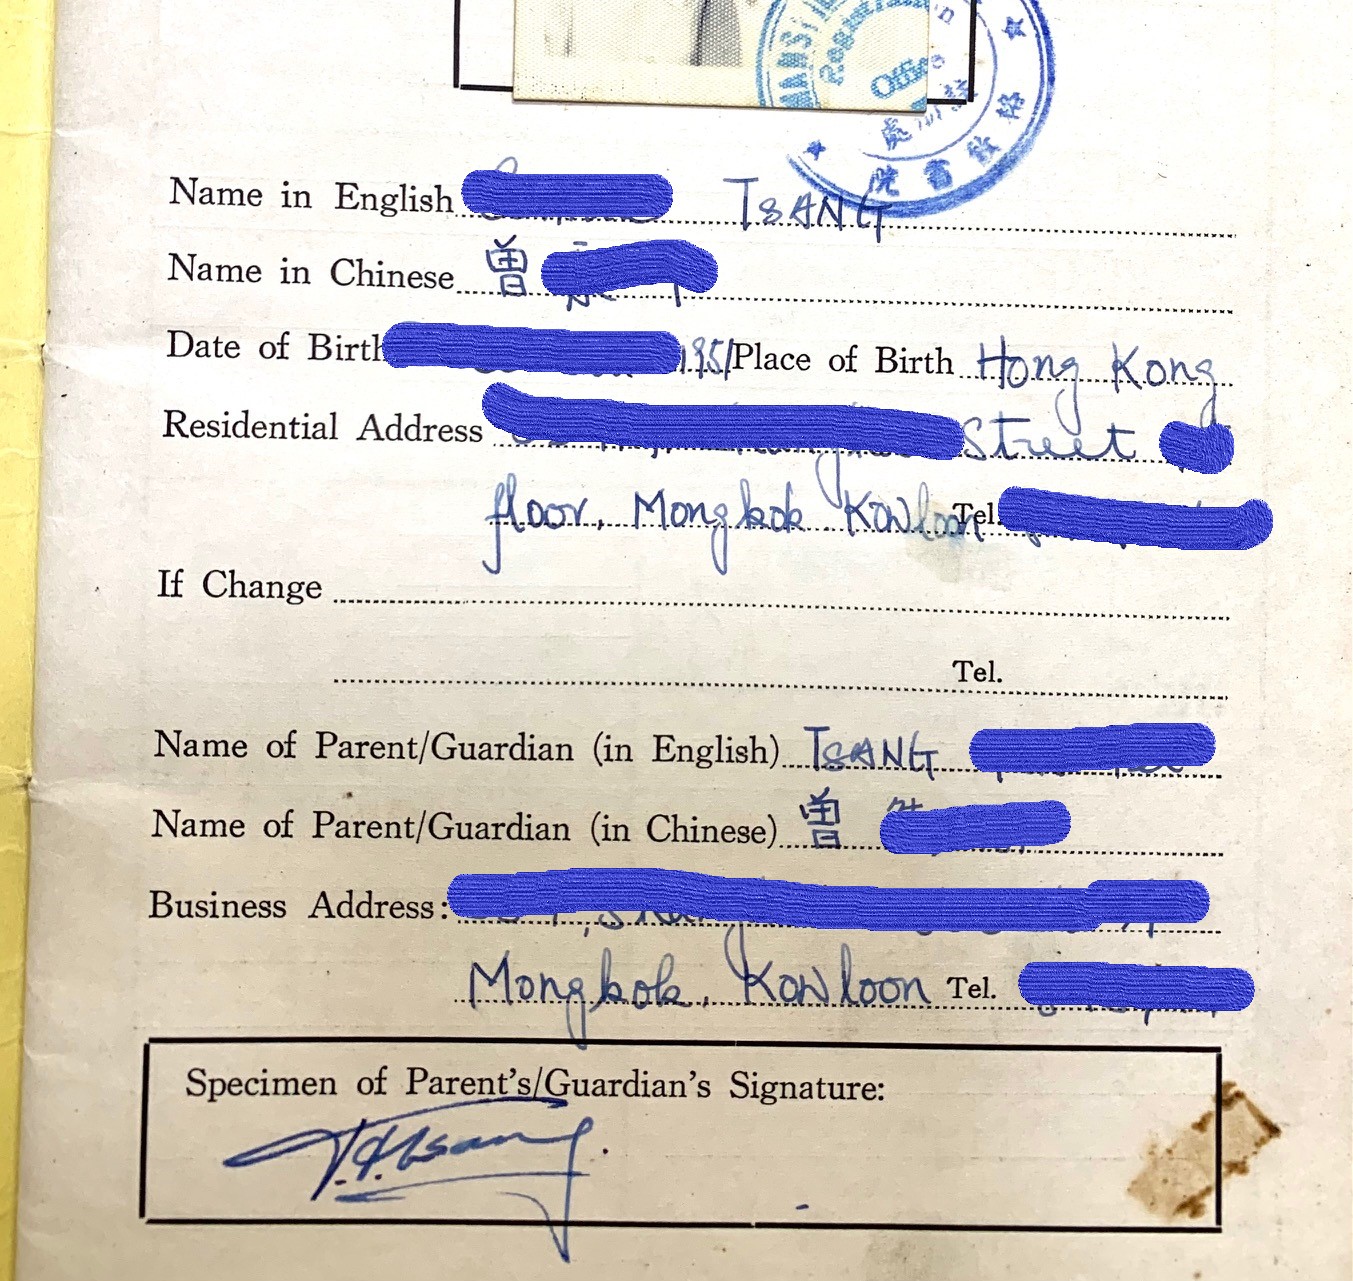 Registrar's
Office
格致書院
處
Name in English TSANG
Name in Chinese 曾
Date of Birth 1951 Place of Birth Hong Kong
Residential Address Street
floor, Mongkok Kowloon Tel.
If Change
Tel.
Name of Parent/Guardian (in English) TSANG
Name of Parent/Guardian (in Chinese) 曾
Business Address:
Mongkok, Kowloon Tel.
Specimen of Parent's/Guardian's Signature: